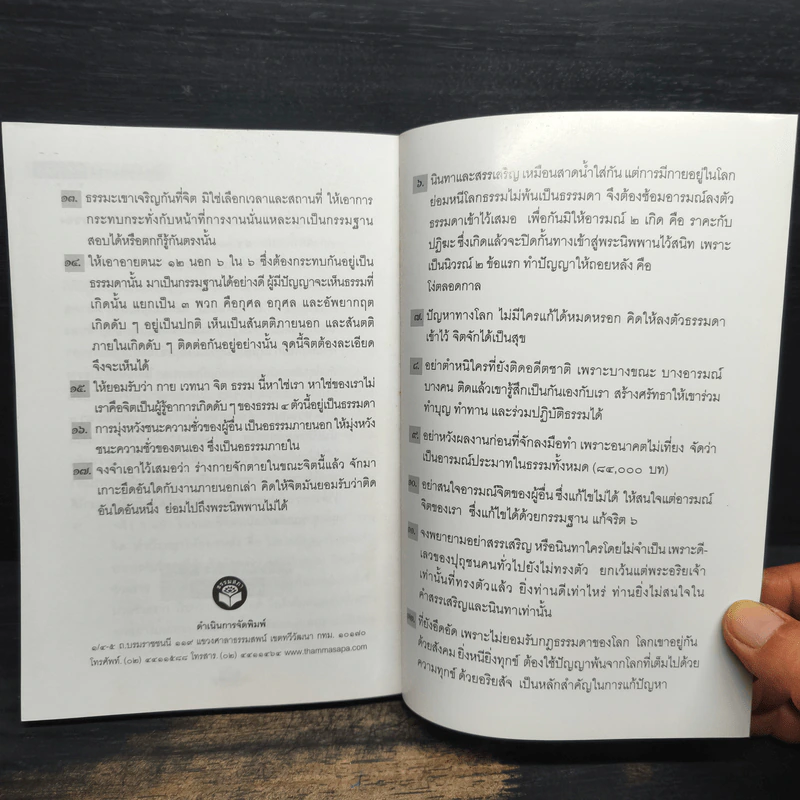 ๑๓. ธรรมะเขาเจริญกันที่จิต มิใช่เลือกเวลาและสถานที่ ให้เอาการ
กระทบกระทั่งกับหน้าที่การงานนั่นแหละมาเป็นกรรมฐาน
สอบได้หรือตกก็รู้กันตรงนั้น
๑๔. ให้เอาอายตนะ ๑๒ นอก ๖ ใน ๖ ซึ่งต้องกระทบกันอยู่เป็น
ธรรมดานั้น มาเป็นกรรมฐานได้อย่างดี ผู้มีปัญญาจะเห็นธรรมที่
เกิดนั้น แยกเป็น ๓ พวก คือกุศล อกุศล และอัพยากฤต
เกิดดับ ๆ อยู่เป็นปกติ เห็นเป็นสันตติภายนอก และสันตติ
ภายในเกิดดับ ๆ ติดต่อกันอยู่อย่างนั้น จุดนี้จิตต้องละเอียด
จึงจะเห็นได้
๑๕. ให้ยอมรับว่า กาย เวทนา จิต ธรรม นี้หาใช่เรา หาใช่ของเราไม่
เราคือจิตเป็นผู้รู้อาการเกิดดับ ๆ ของธรรม ๔ ตัวนี้อยู่เป็นธรรมดา
๑๖. การมุ่งหวังชนะความชั่วของผู้อื่น เป็นอธรรมภายนอก ให้มุ่งหวัง
ชนะความชั่วของตนเอง ซึ่งเป็นอธรรมภายใน
๑๗. จงจำเอาไว้เสมอว่า ร่างกายจักตายในขณะจิตนี้แล้ว จักมา
เกาะยึดอันใดกับงานภายนอกเล่า คิดให้จิตมันยอมรับว่าติด
อันใดอันหนึ่ง ย่อมไปถึงพระนิพพานไม่ได้
ธรรมสภา
ดำเนินการจัดพิมพ์
๑/๔-๕ ถ.บรมราชชนนี ๑๑๙ แขวงศาลาธรรมสพน์ เขตทวีวัฒนา กทม. ๑๐๑๗๐
โทรศัพท์. (๐๒) ๔๔๑๑๕๘๘ โทรสาร. (๐๒) ๔๔๑๑๔๖๔ www.thammasapa.com
๖. นินทาและสรรเสริญ เหมือนสาดน้ำใส่กัน แต่การมีกายอยู่ในโลก
ย่อมหนีโลกธรรมไม่พ้นเป็นธรรมดา จึงต้องซ้อมอารมณ์ลงตัว
ธรรมดาเข้าไว้เสมอ เพื่อกันมิให้อารมณ์ ๒ เกิด คือ ราคะกับ
ปฏิฆะ ซึ่งเกิดแล้วจะปิดกั้นทางเข้าสู่พระนิพพานไว้สนิท เพราะ
เป็นนิวรณ์ ๒ ข้อแรก ทำปัญญาให้ถอยหลัง คือ
โง่ตลอดกาล
๗. ปัญหาทางโลก ไม่มีใครแก้ได้หมดหรอก คิดให้ลงตัวธรรมดา
เข้าไว้ จิตจักได้เป็นสุข
๘. อย่าตำหนิใครที่ยังติดอดีตชาติ เพราะบางขณะ บางอารมณ์
บางคน ติดแล้วเขารู้สึกเป็นกันเองกับเรา สร้างศรัทธาให้เขาร่วม
ทำบุญ ทำทาน และร่วมปฏิบัติธรรมได้
๙. อย่าหวังผลงานก่อนที่จักลงมือทำ เพราะอนาคตไม่เที่ยง จัดว่า
เป็นอารมณ์ประมาทในธรรมทั้งหมด (๘๔,๐๐๐ บท)
๑๐. อย่าสนใจอารมณ์จิตของผู้อื่น ซึ่งแก้ไขไม่ได้ ให้สนใจแต่อารมณ์
จิตของเรา ซึ่งแก้ไขได้ด้วยกรรมฐาน แก้จริต ๖
๑๑. จงพยายามอย่าสรรเสริญ หรือนินทาใครโดยไม่จำเป็น เพราะดี-
เลวของปุถุชนคนทั่วไปยังไม่ทรงตัว ยกเว้นแต่พระอริยเจ้า
เท่านั้นที่ทรงตัวแล้ว ยิ่งท่านดีเท่าไหร่ ท่านยิ่งไม่สนใจใน
คำสรรเสริญและนินทาเท่านั้น
๑๒. ที่ยังอึดอัด เพราะไม่ยอมรับกฎธรรมดาของโลก โลกเขาอยู่กัน
ด้วยสังคม ยิ่งหนียิ่งทุกข์ ต้องใช้ปัญญาพ้นจากโลกที่เต็มไปด้วย
ความทุกข์ ด้วยอริยสัจ เป็นหลักสำคัญในการแก้ปัญหา